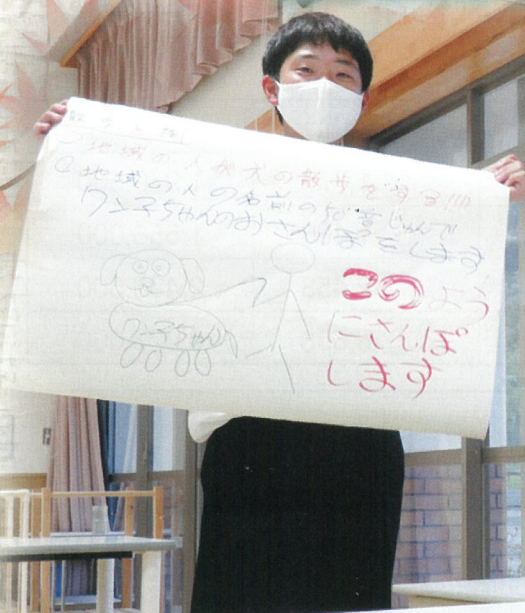 地域の人が犬の散歩を
②地域の人の名前の50音じゅんで
ワン子ちゃんのおさんぽをします
ワン子ちゃん
このよう
にさんぽ
します